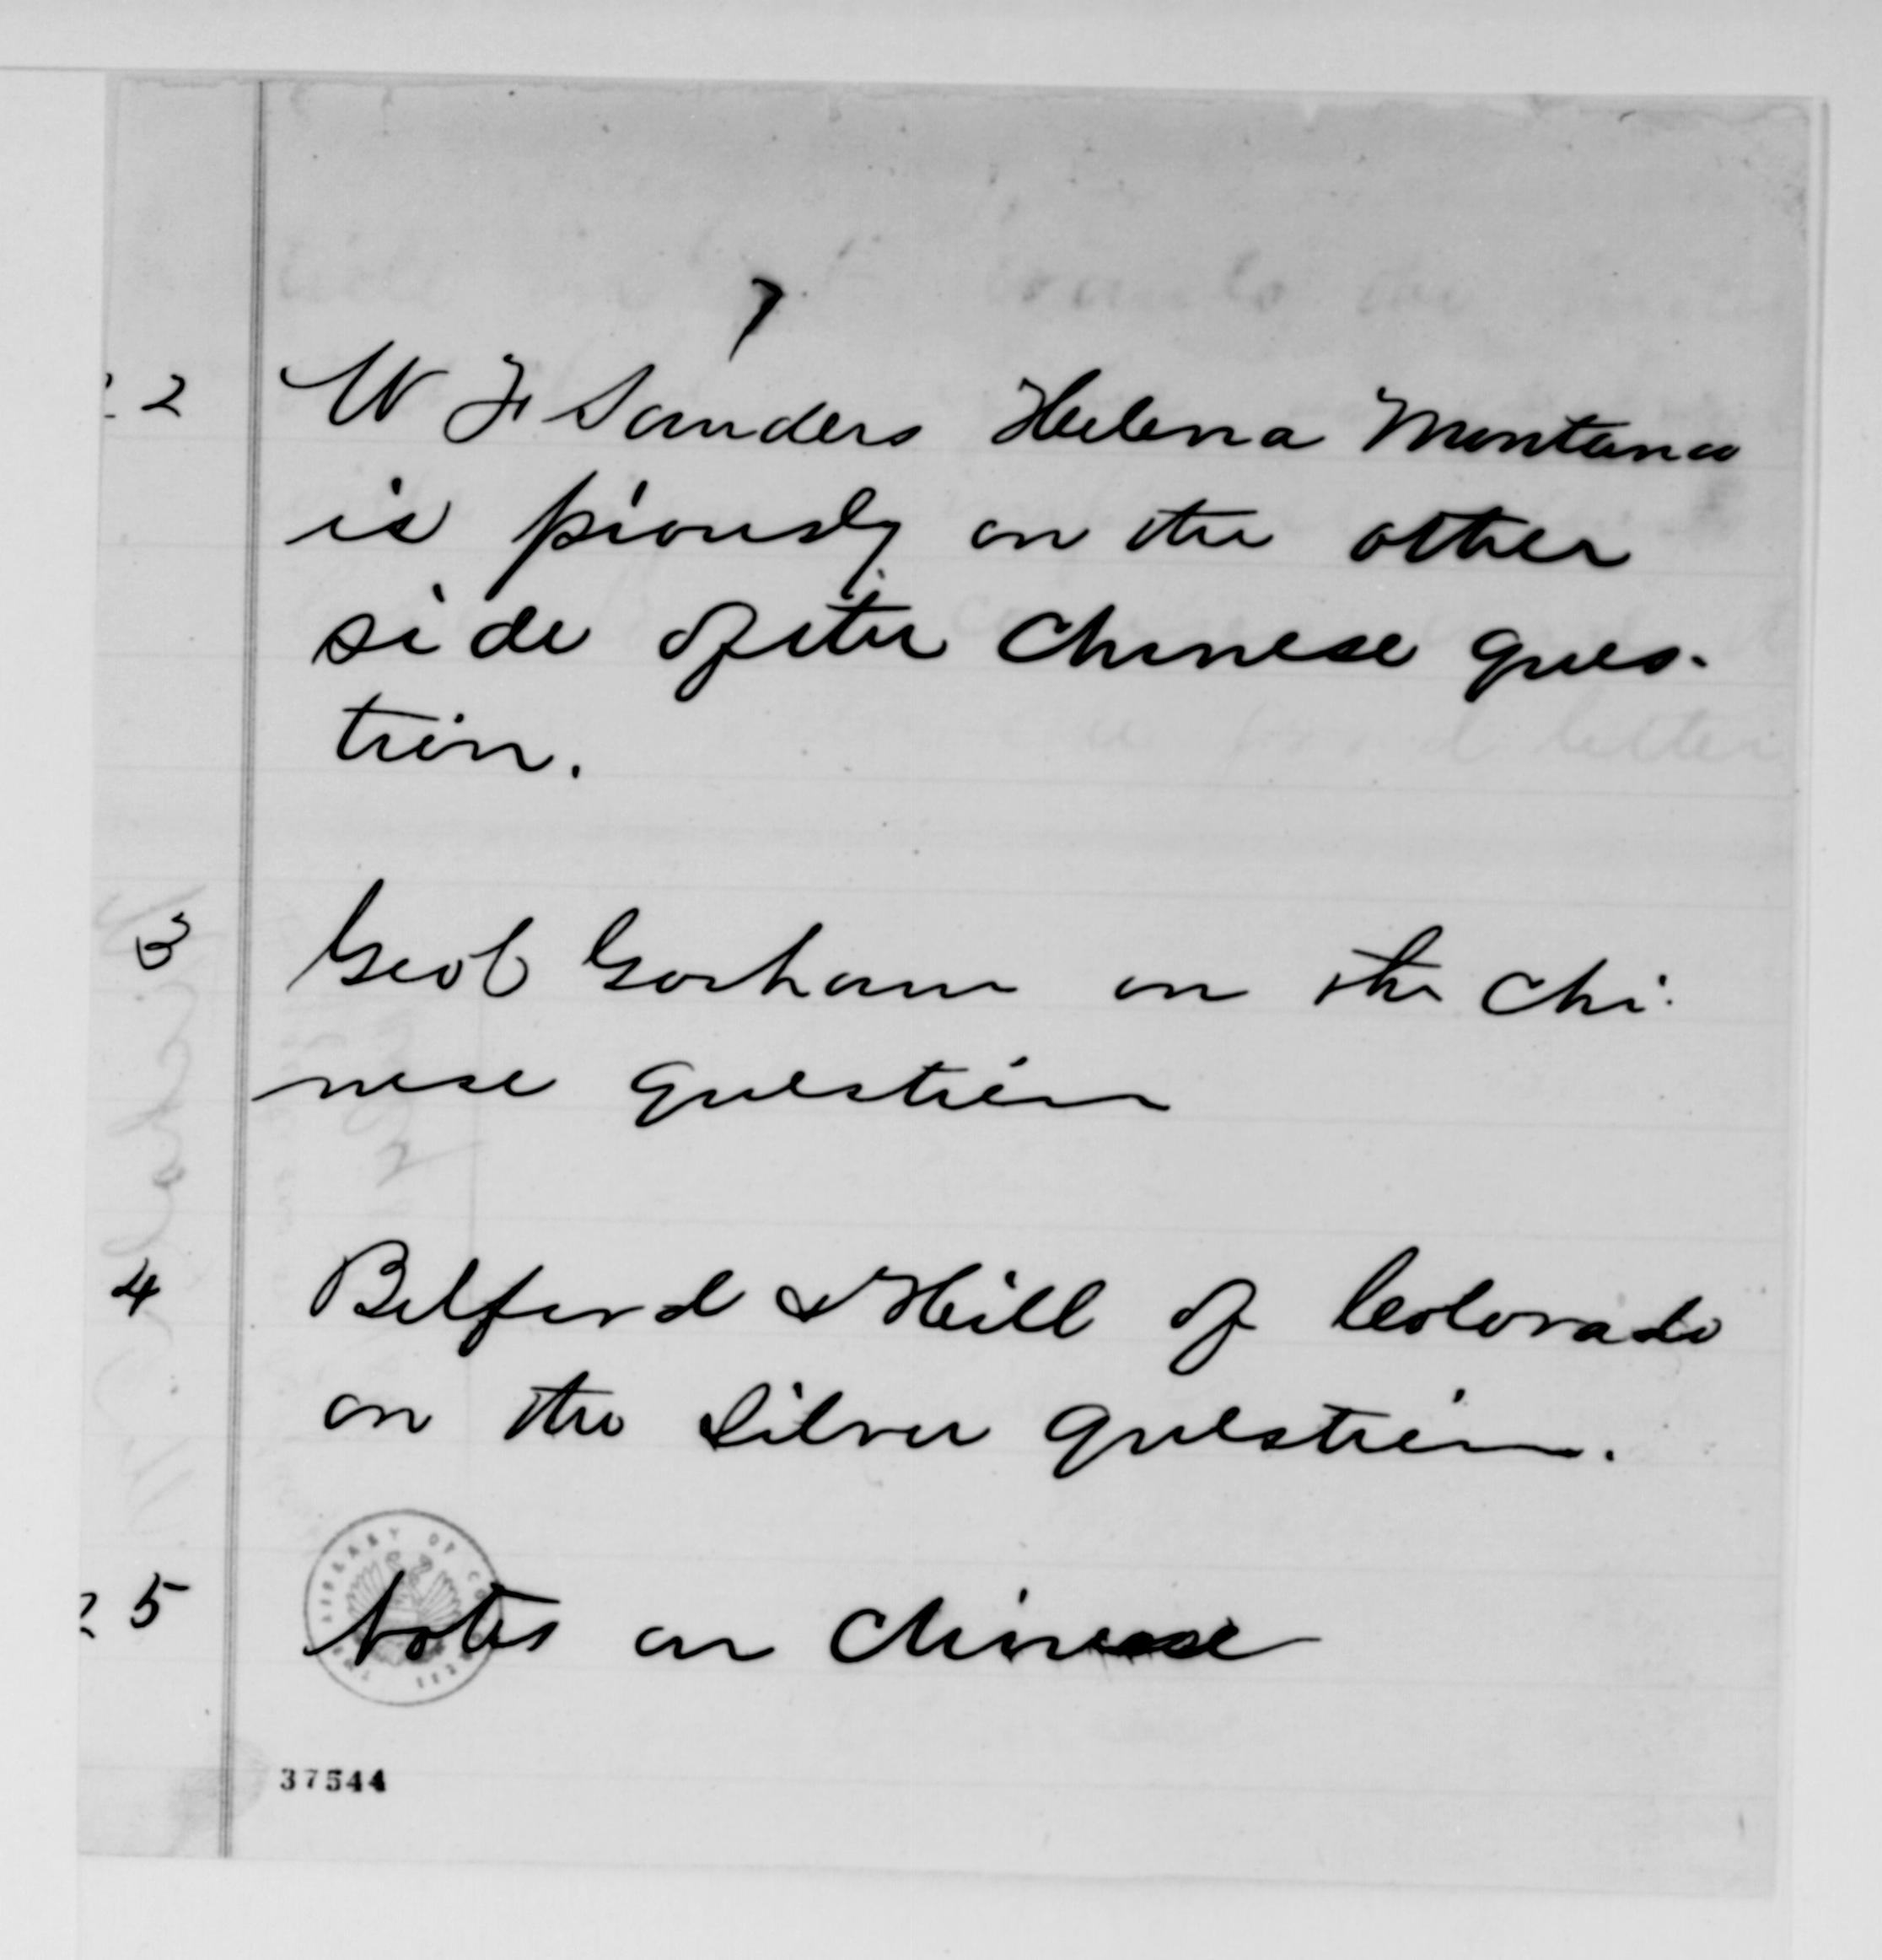 7
22 W F Sanders Helena Montana
is piously on the other
side of the Chinese ques-
tion.
3 Geo C Gorham on the Chi-
nese question
4 Belford & Hill of Colorado
on the Silver question.
25 Notes on Chinese
LIBRARY OF CO
37544